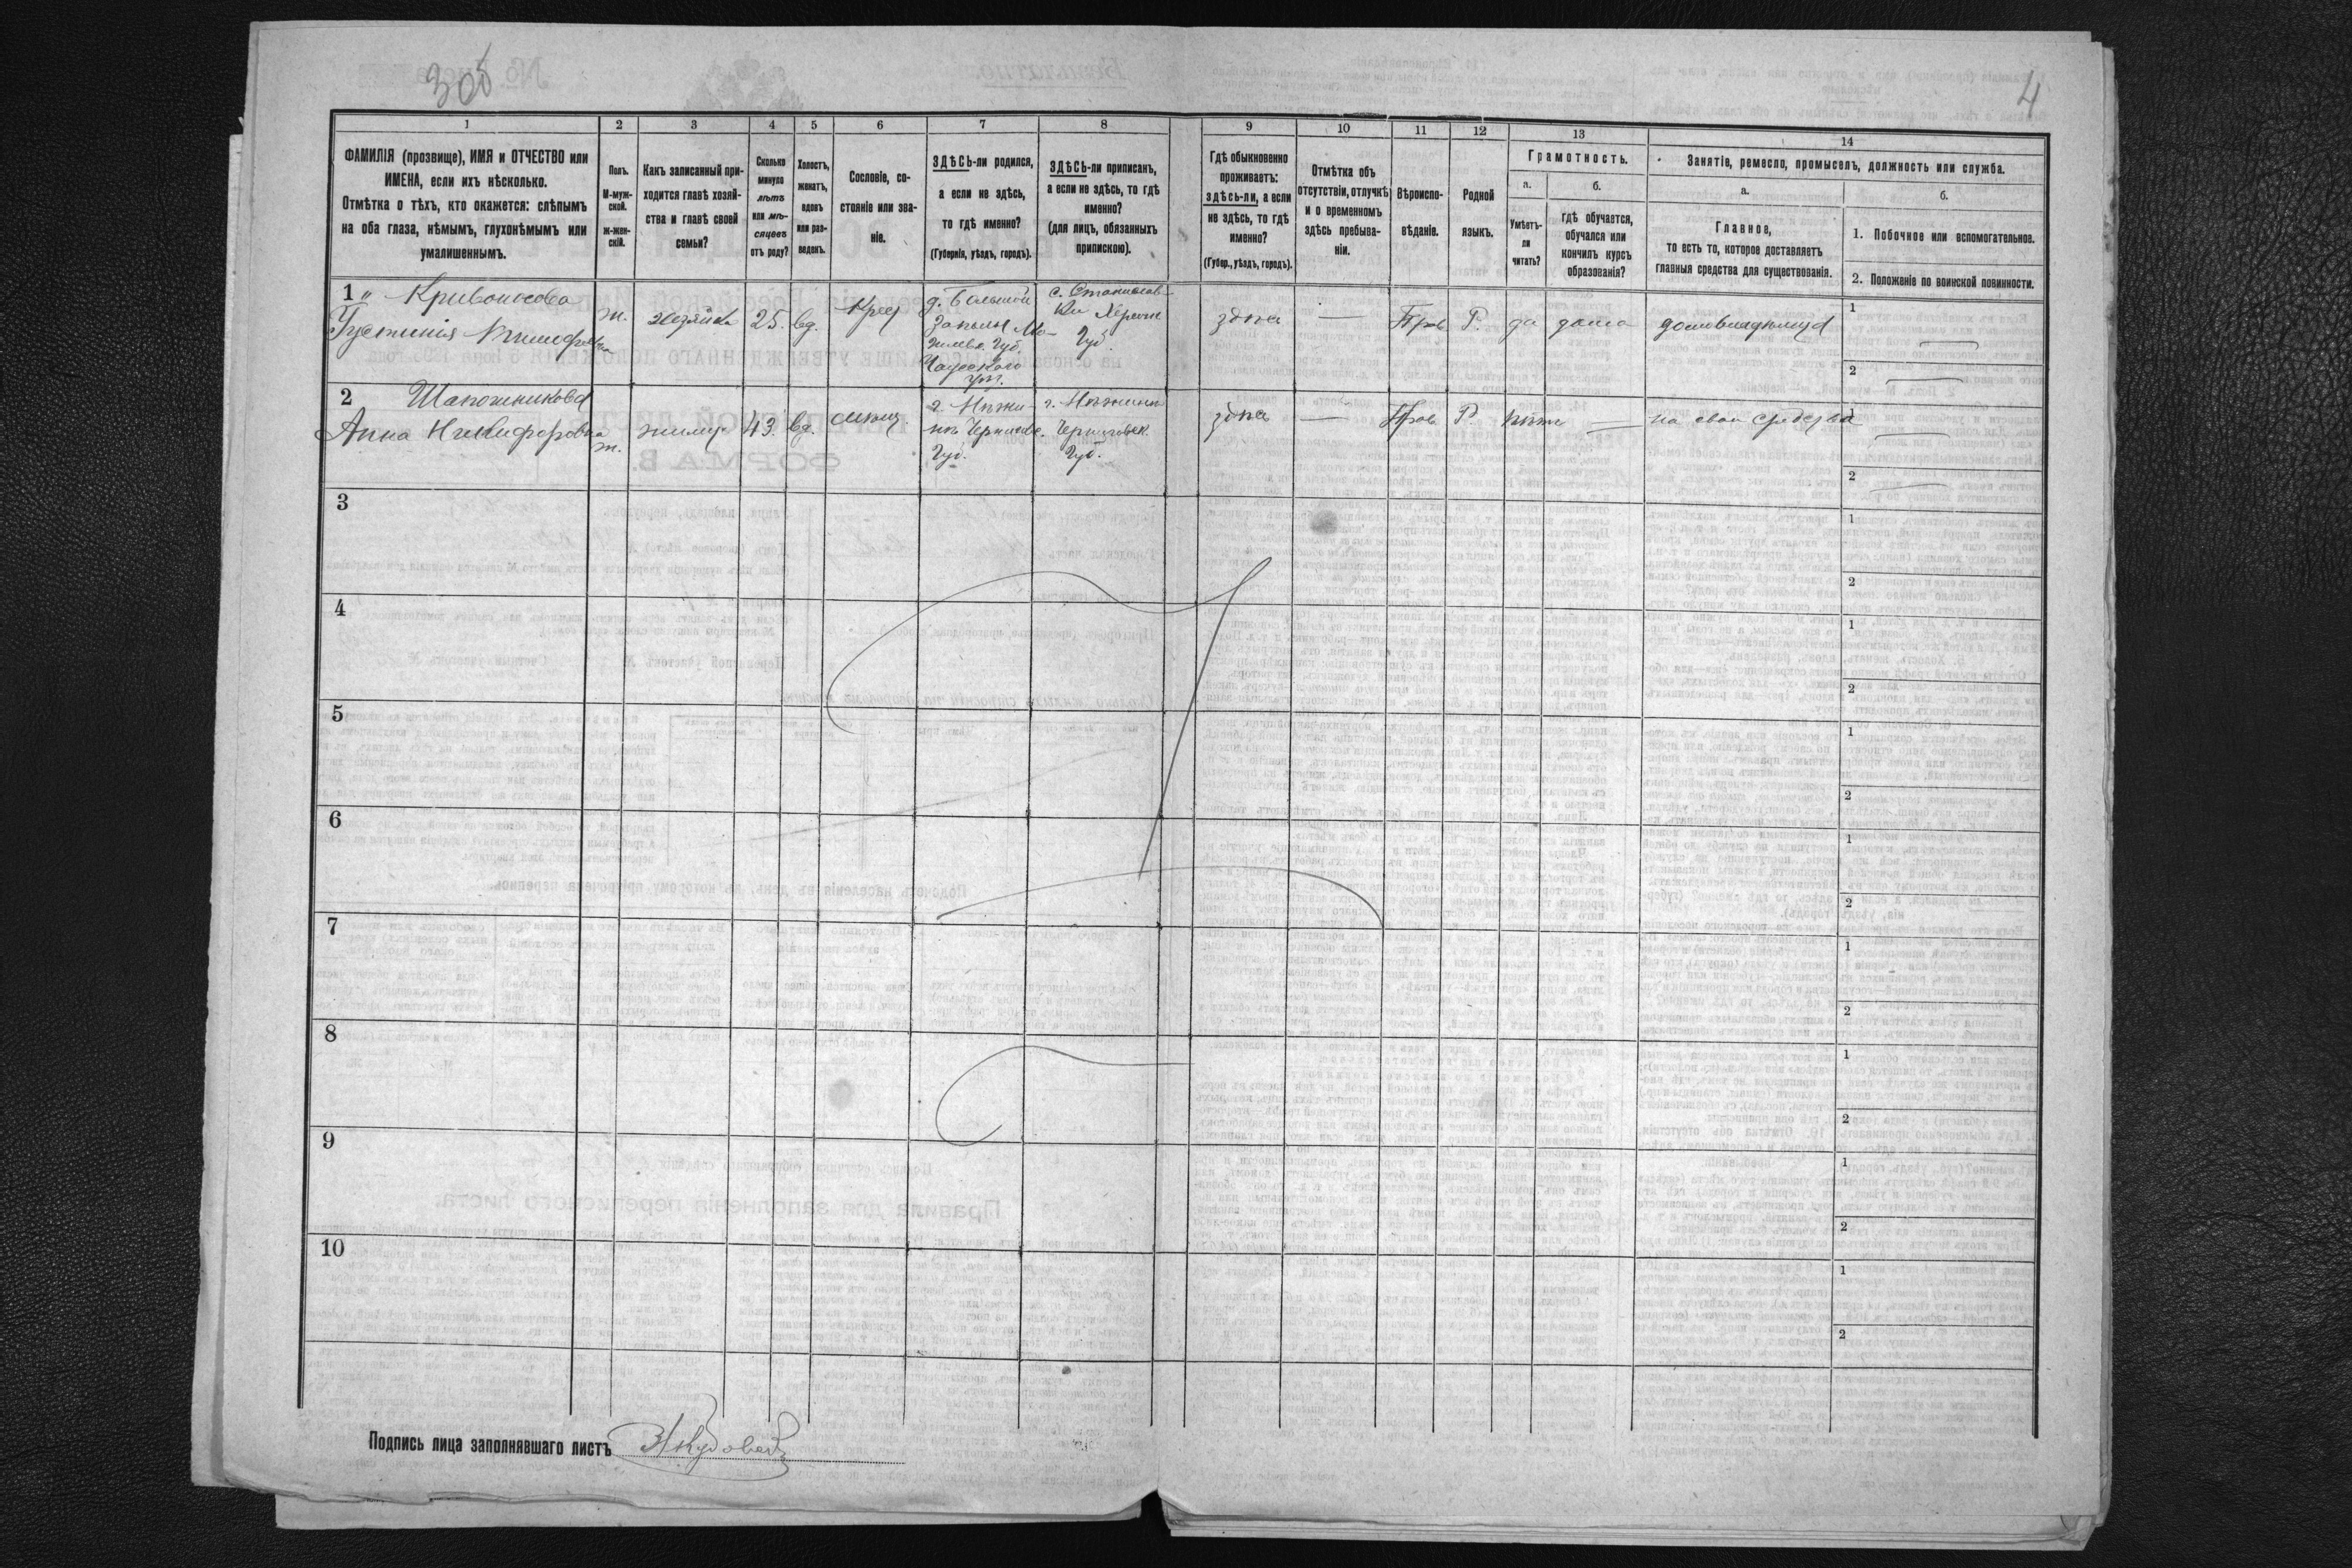 305
4
1
2
3
4
5
6
7
8
9
10
11
12
13
14
ФАМИЛІЯ (прозвище), ИМЯ и ОТЧЕСТВО или
ИМЕНА, если ихъ нѣсколько.
Отмѣтка о тѣхъ, кто окажется: слѣпымъ
на оба глаза, нѣмымъ, глухонѣмымъ или
умалишеннымъ.
Полъ.
М-муж-
ской.
ж-жен-
скій.
Какъ записанный при-
ходится главѣ хозяй-
ства и главѣ своей
семьи?
Сколько
минуло
лѣтъ
или мѣ-
сяцевъ
отъ роду?
Холостъ,
женатъ,
вдовъ
или раз-
веденъ.
Сословіе, со-
стояніе или зва-
ніе.
ЗДѢСЬ-ли родился,
а если не здѣсь,
то гдѣ именно?
(Губернія, уѣздъ, городъ).
ЗДѢСЬ-ли приписанъ,
а если не здѣсь, то гдѣ
именно?
(для лицъ, обязанныхъ
припискою).
Гдѣ обыкновенно
проживаетъ:
здѣсь-ли, а если
не здѣсь, то гдѣ
именно?
(Губер., уѣздъ, городъ).
Отмѣтка объ
отсутствіи, отлучкѣ
и о временномъ
здѣсь пребыва-
ніи.
Вѣроиспо-
вѣданіе.
Родной
языкъ.
Грамотность.
а.
Умѣетъ-
ли
читать?
б.
гдѣ обучается,
обучался или
кончилъ курсъ
образованія?
Занятіе, ремесло, промыселъ, должность или служба.
а.
Главное,
то есть то, которое доставляетъ
главныя средства для существованія.
б.
1. Побочное или вспомогательное.
2. Положеніе по воинской повинности.
1 Кривоносова
Устинія
ж.
хозяйка
25.
вд.
Крес
д.
Могилев. Губ.
с. Станислав-
Ки Херсон
Губ.
здѣсь
—
Прав
Р.
да
дома
домовладѣлица
1
2
2 Шапошникова
Анна Никифоровна
ж.
жилица
43.
вд.
мѣщ.
г. Нѣжи-
нъ Чернигов.
Губ.
г. Нѣжинъ
Черниговск.
Губ.
здѣсь
—
Прав
Р.
нѣтъ
на свои средства
1
2
3
1
2
4
1
2
5
1
2
6
1
2
7
1
2
8
1
2
9
1
2
10
1
2
Подпись лица заполнявшаго листъ